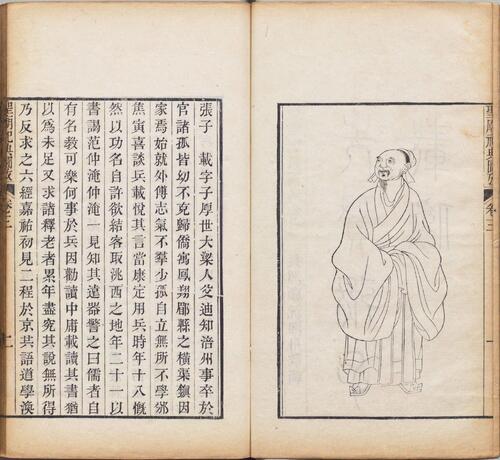 聖廟祀典圖攷 卷三
張子 載字子厚世大梁人父迪知涪州事卒於
官諸孤皆幼不克歸僑寓鳳翔郿縣之橫渠鎮因
家焉始就外傅志氣不羣少孤自立無所不學邠
焦寅喜談兵載悅其言當康定用兵時年十八慨
然以功名自許欲結客取洮西之地年二十一以
書謁范仲淹仲淹一見知其遠器警之曰儒者自
有名教可樂何事於兵因勸讀中庸載讀其書猶
以爲未足又求諸釋老者累年盡究其說無所得
乃反求之六經嘉祐初見二程於京共語道學渙
聖廟祀典圖攷 卷三